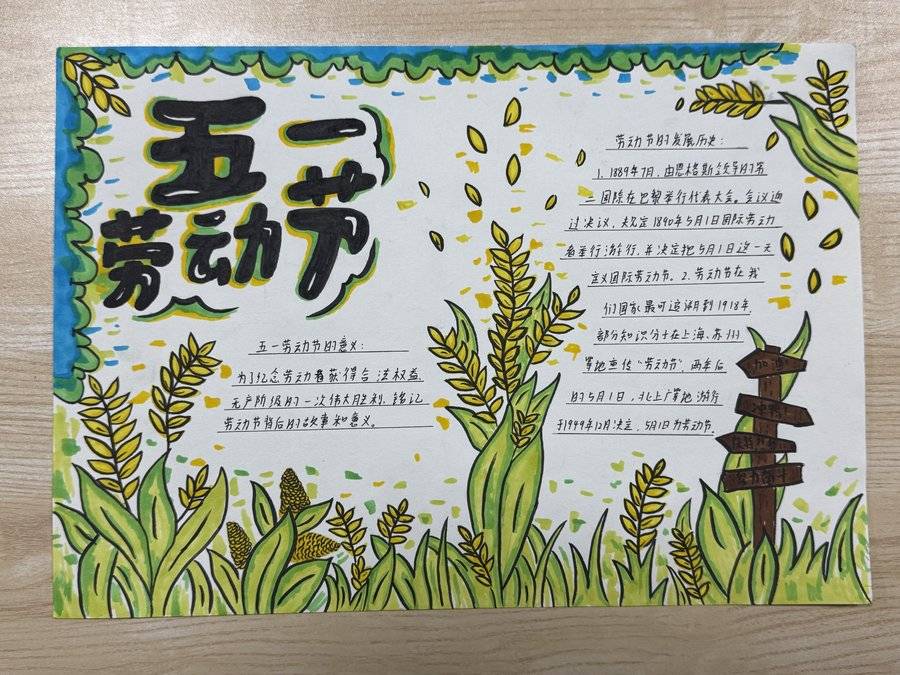 五一
劳动节
五一劳动节的意义:
为了纪念劳动者获得合法权益,
无产阶级的一次伟大胜利,铭记
劳动节背后的故事和意义。
劳动节的发展历史:
1. 1889年7月,由恩格斯领导的第
二国际在巴黎举行代表大会。会议通
过决议,规定1890年5月1日国际劳动
者举行游行,并决定把5月1日这一天
定义国际劳动节。2.劳动节在我
们国家最可追溯到1918年,
部分知识分子在上海、苏州
等地宣传"劳动节",两年后
的5月1日,北上广等地游行
于1949年12月决定,5月1日为劳动节.
加油